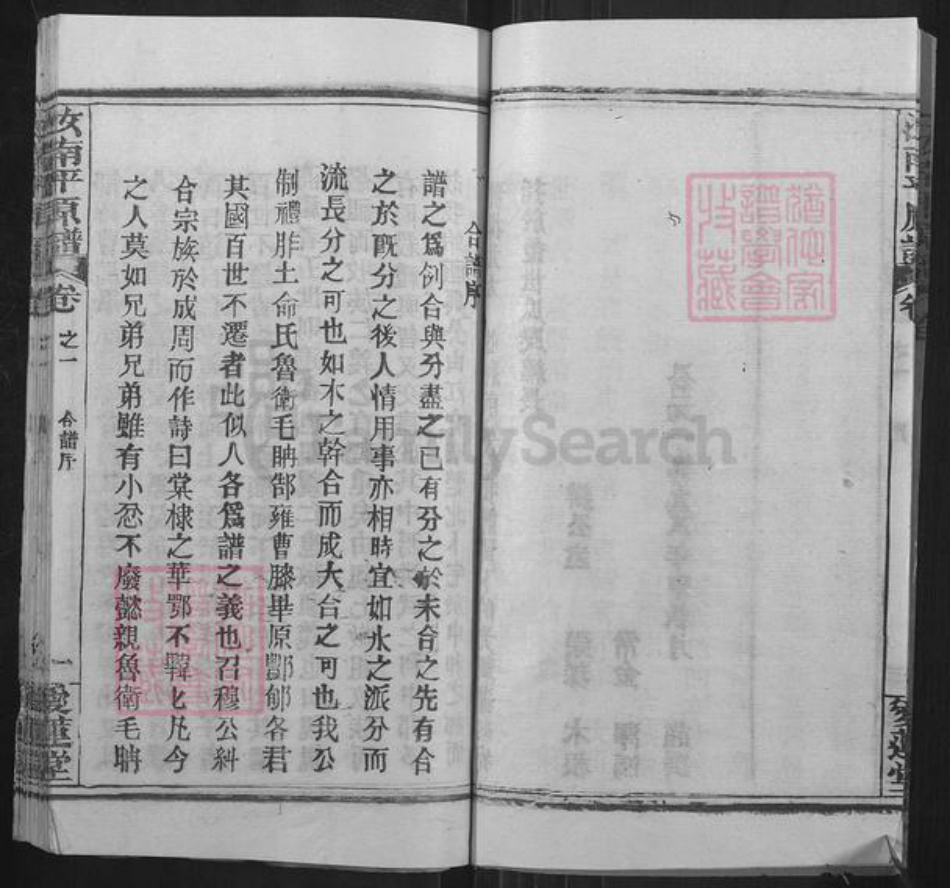 合譜序
譜之爲例合與分盡之已有分之於未合之先有合
之於既分之後人情用事亦相時宜如水之派分而
流長分之可也如木之幹合而成大合之可也我公
制禮胙土命氏魯衛毛聃郜雍曹滕畢原酆郇各君
其國百世不遷者此似人各爲譜之義也召穆公糾
合宗族於成周而作詩曰棠棣之華鄂不韡韡凡今
之人莫如兄弟兄弟雖有小忿不廢懿親魯衛毛聃
汝南平原譜 卷之一 合譜序 一 愛蓮堂
FamilySearch